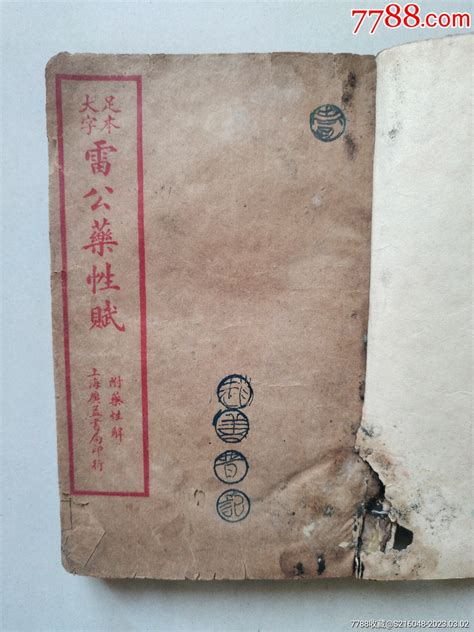 7788.com
足本
大字
雷公藥性賦
附藥性解
上海廣益書局印行
7788收藏@S216048-2023.03.02